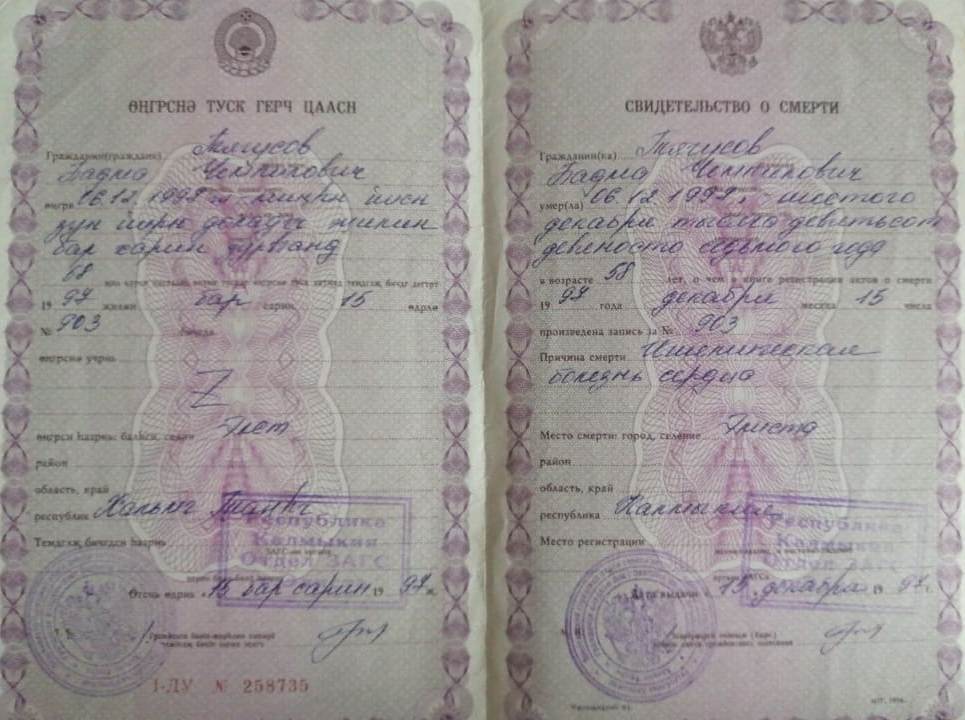 ӨҢГРСНӘ ТУСК ГЕРЧ ЦААСН
Гражданин(гражданк) Тягусов
Бадма
өңгрв 06.12.1997 җ.
зун йирн доладгч җилин
бар сарин
58
19 97 җилин бар сарин 15 өдрлә
№ 903 бичгдв
өңгрснә учрнь
Z
өңгрсн һазрнь: балһсн, селән Элст
район
область, край
республик Хальмг Таңһч
Темдглҗ бичгдсн һазрнь
Республика
Калмыкия
Отдел ЗАГС
Өгсн өдрнь „15 бар сарин 19 97 җ.
I-ДУ № 258735
СВИДЕТЕЛЬСТВО О СМЕРТИ
Гражданин(ка) Тягусов
Бадма
умер(ла) 06.12.1997 г. шестого
декабря тысяча девятьсот
девяносто седьмого года
в возрасте 58 лет, о чем в книге регистрации актов о смерти
19 97 года декабря месяца 15 числа
произведена запись за № 903
Причина смерти Ишемическая
болезнь сердца
Место смерти: город, селение Элиста
район
область, край
республика Калмыкия
Место регистрации
Республика
Калмыкия
Отдел ЗАГС
Дата выдачи „15 декабря 19 97 г.